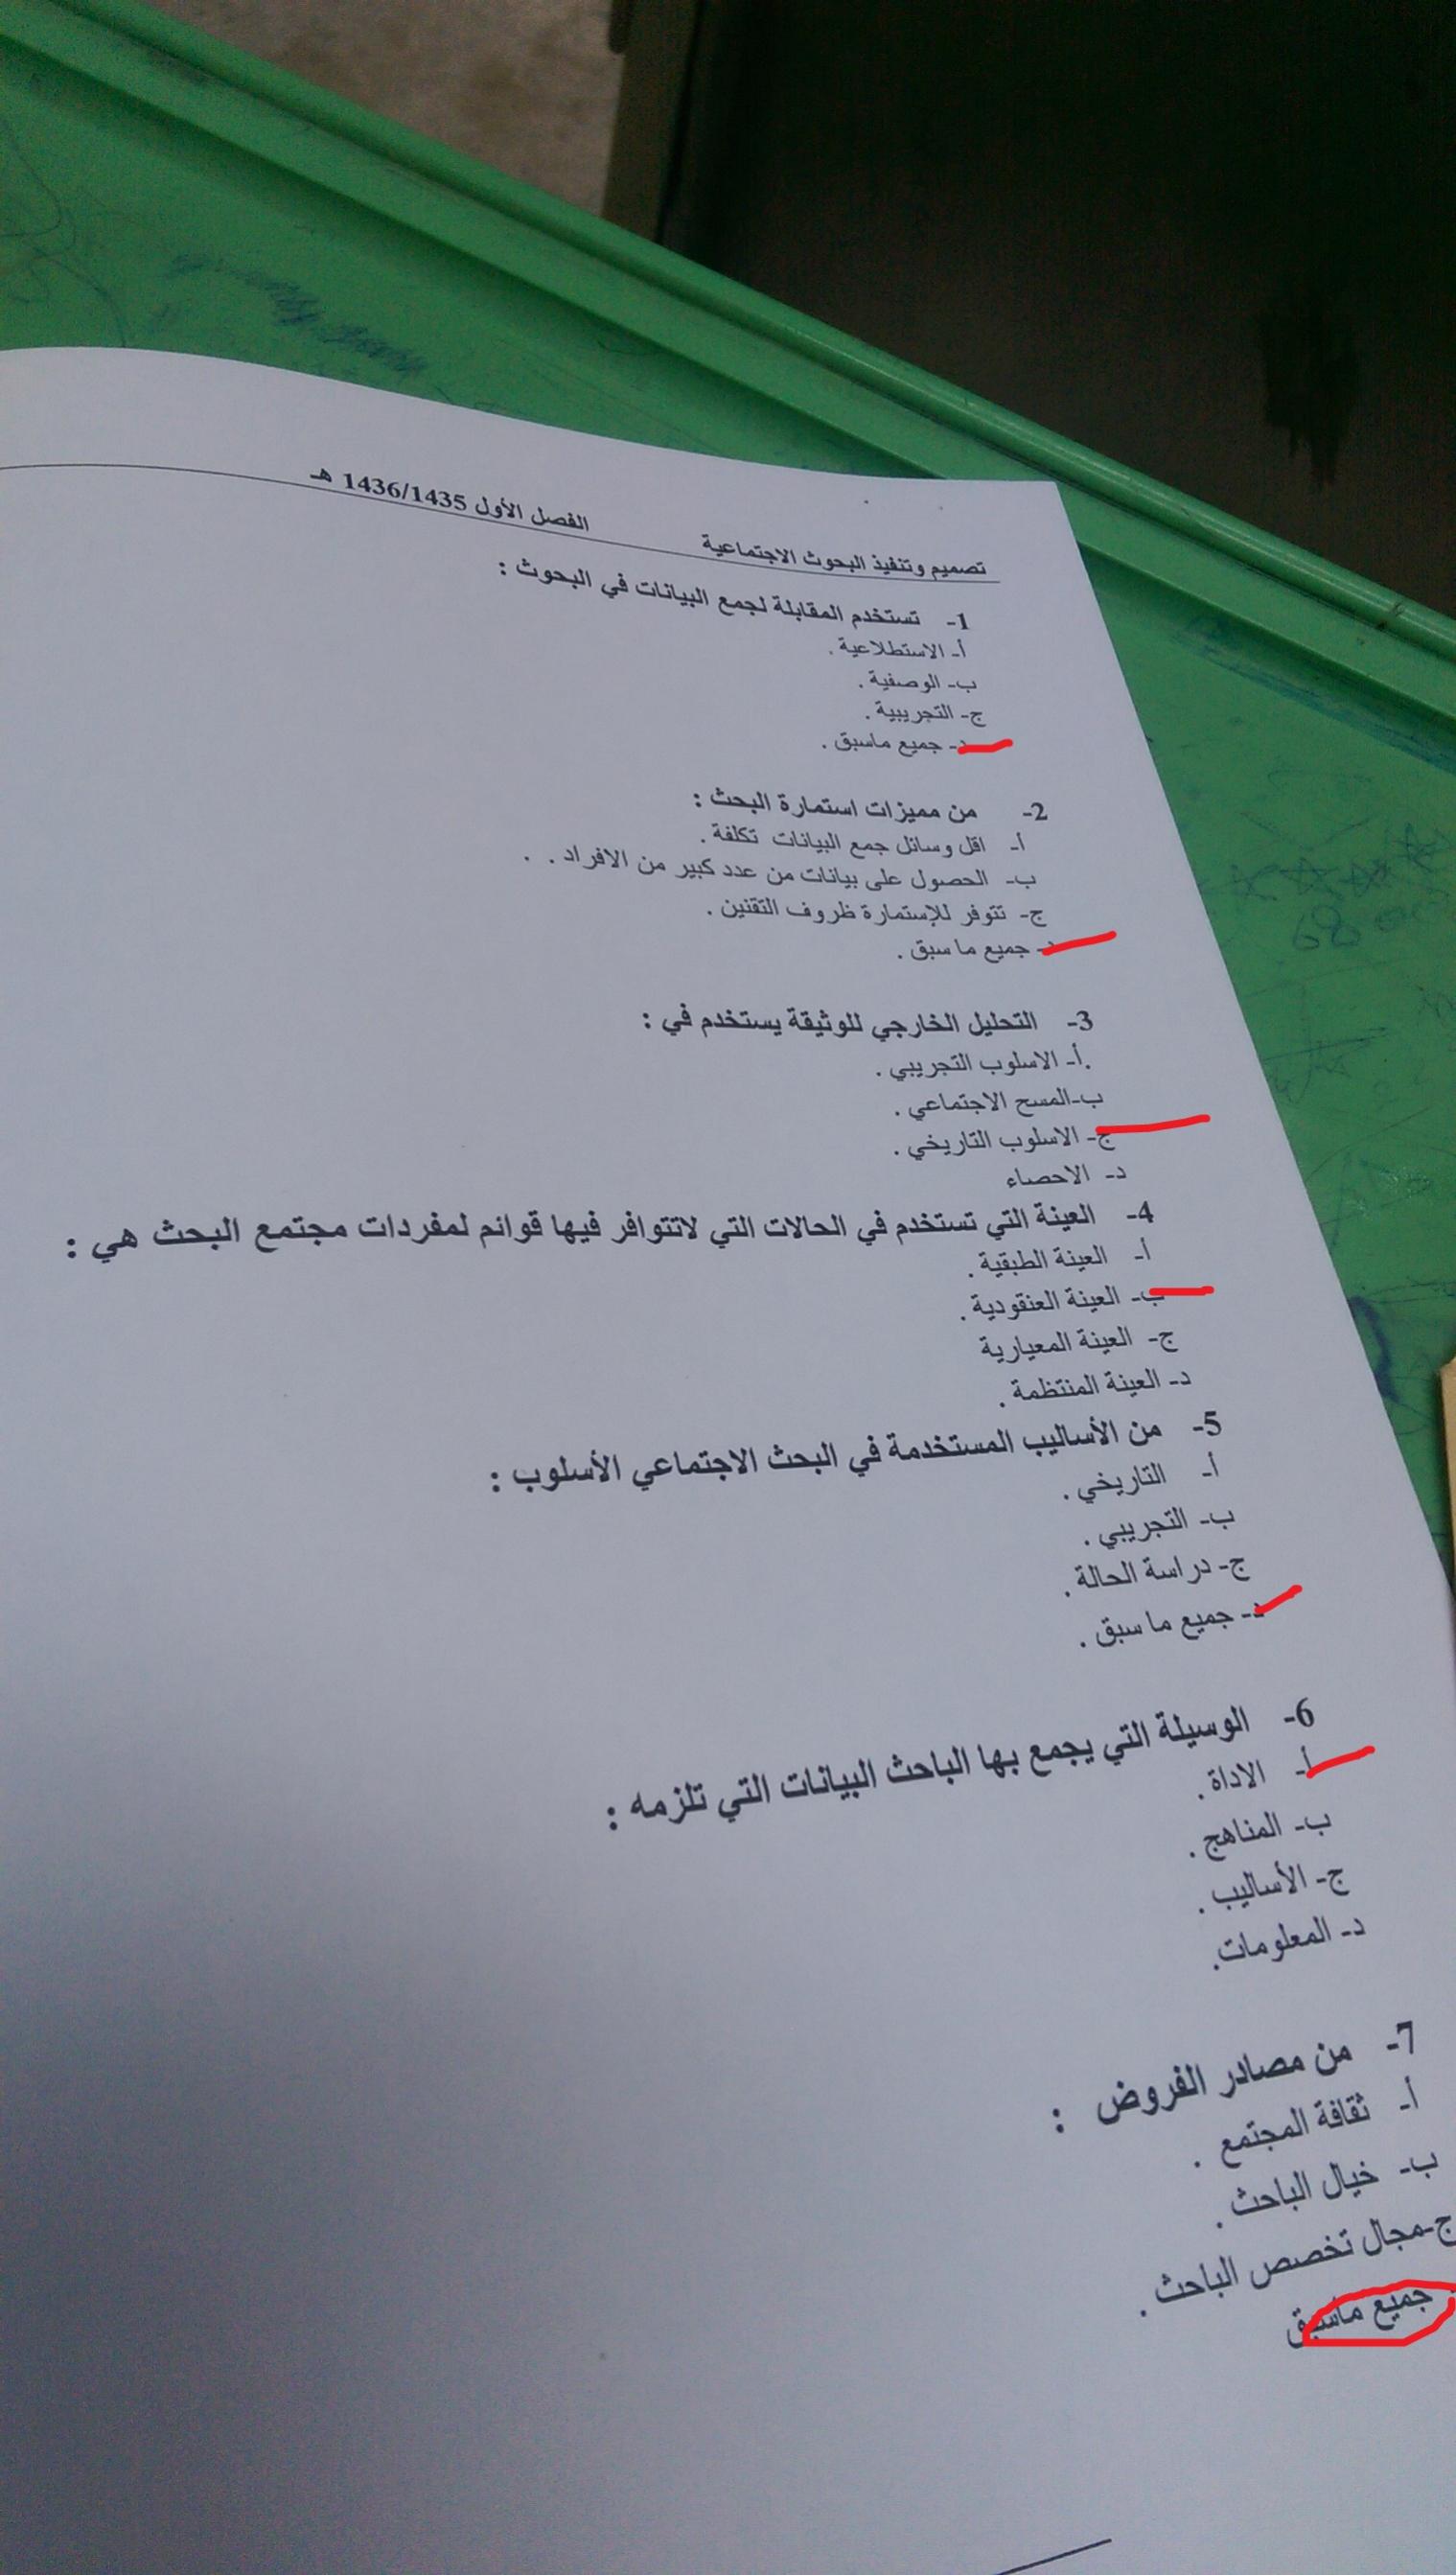 تصميم وتنفيذ البحوث الاجتماعية الفصل الأول 1436/1435 هـ
1- تستخدم المقابلة لجمع البيانات في البحوث :
أ- الاستطلاعية .
ب- الوصفية .
ج- التجريبية .
د- جميع ماسبق .
2- من مميزات استمارة البحث :
أ- اقل وسائل جمع البيانات تكلفة .
ب- الحصول على بيانات من عدد كبير من الافراد . .
ج- تتوفر للإستمارة ظروف التقنين .
د- جميع ما سبق .
3- التحليل الخارجي للوثيقة يستخدم في :
.أ- الاسلوب التجريبي .
ب-المسح الاجتماعي .
ج- الاسلوب التاريخي .
د- الاحصاء
4- العينة التي تستخدم في الحالات التي لاتتوافر فيها قوائم لمفردات مجتمع البحث هي :
أ- العينة الطبقية .
ب- العينة العنقودية .
ج- العينة المعيارية
د- العينة المنتظمة .
5- من الأساليب المستخدمة في البحث الاجتماعي الأسلوب :
أ- التاريخي .
ب- التجريبي .
ج- دراسة الحالة .
د- جميع ما سبق .
6- الوسيلة التي يجمع بها الباحث البيانات التي تلزمه :
أ- الاداة .
ب- المناهج .
ج- الأساليب .
د- المعلومات.
7- من مصادر الفروض :
أ- ثقافة المجتمع .
ب- خيال الباحث .
ج-مجال تخصص الباحث .
جميع ماسبق